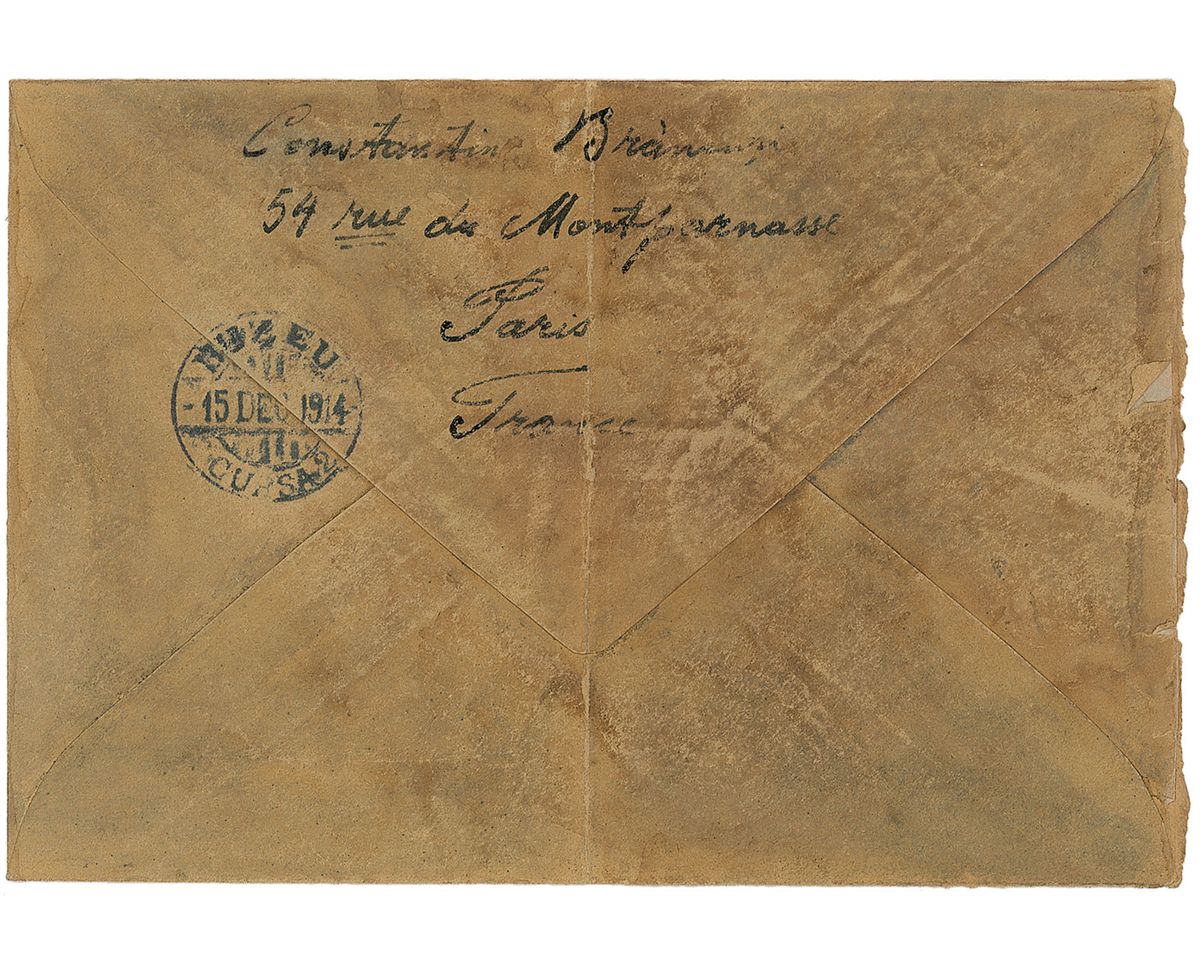 Constantin Brâncuși
54 rue du Montparnasse
Paris
France
BUZEU
-15 DEC 1914-
CURSA 2